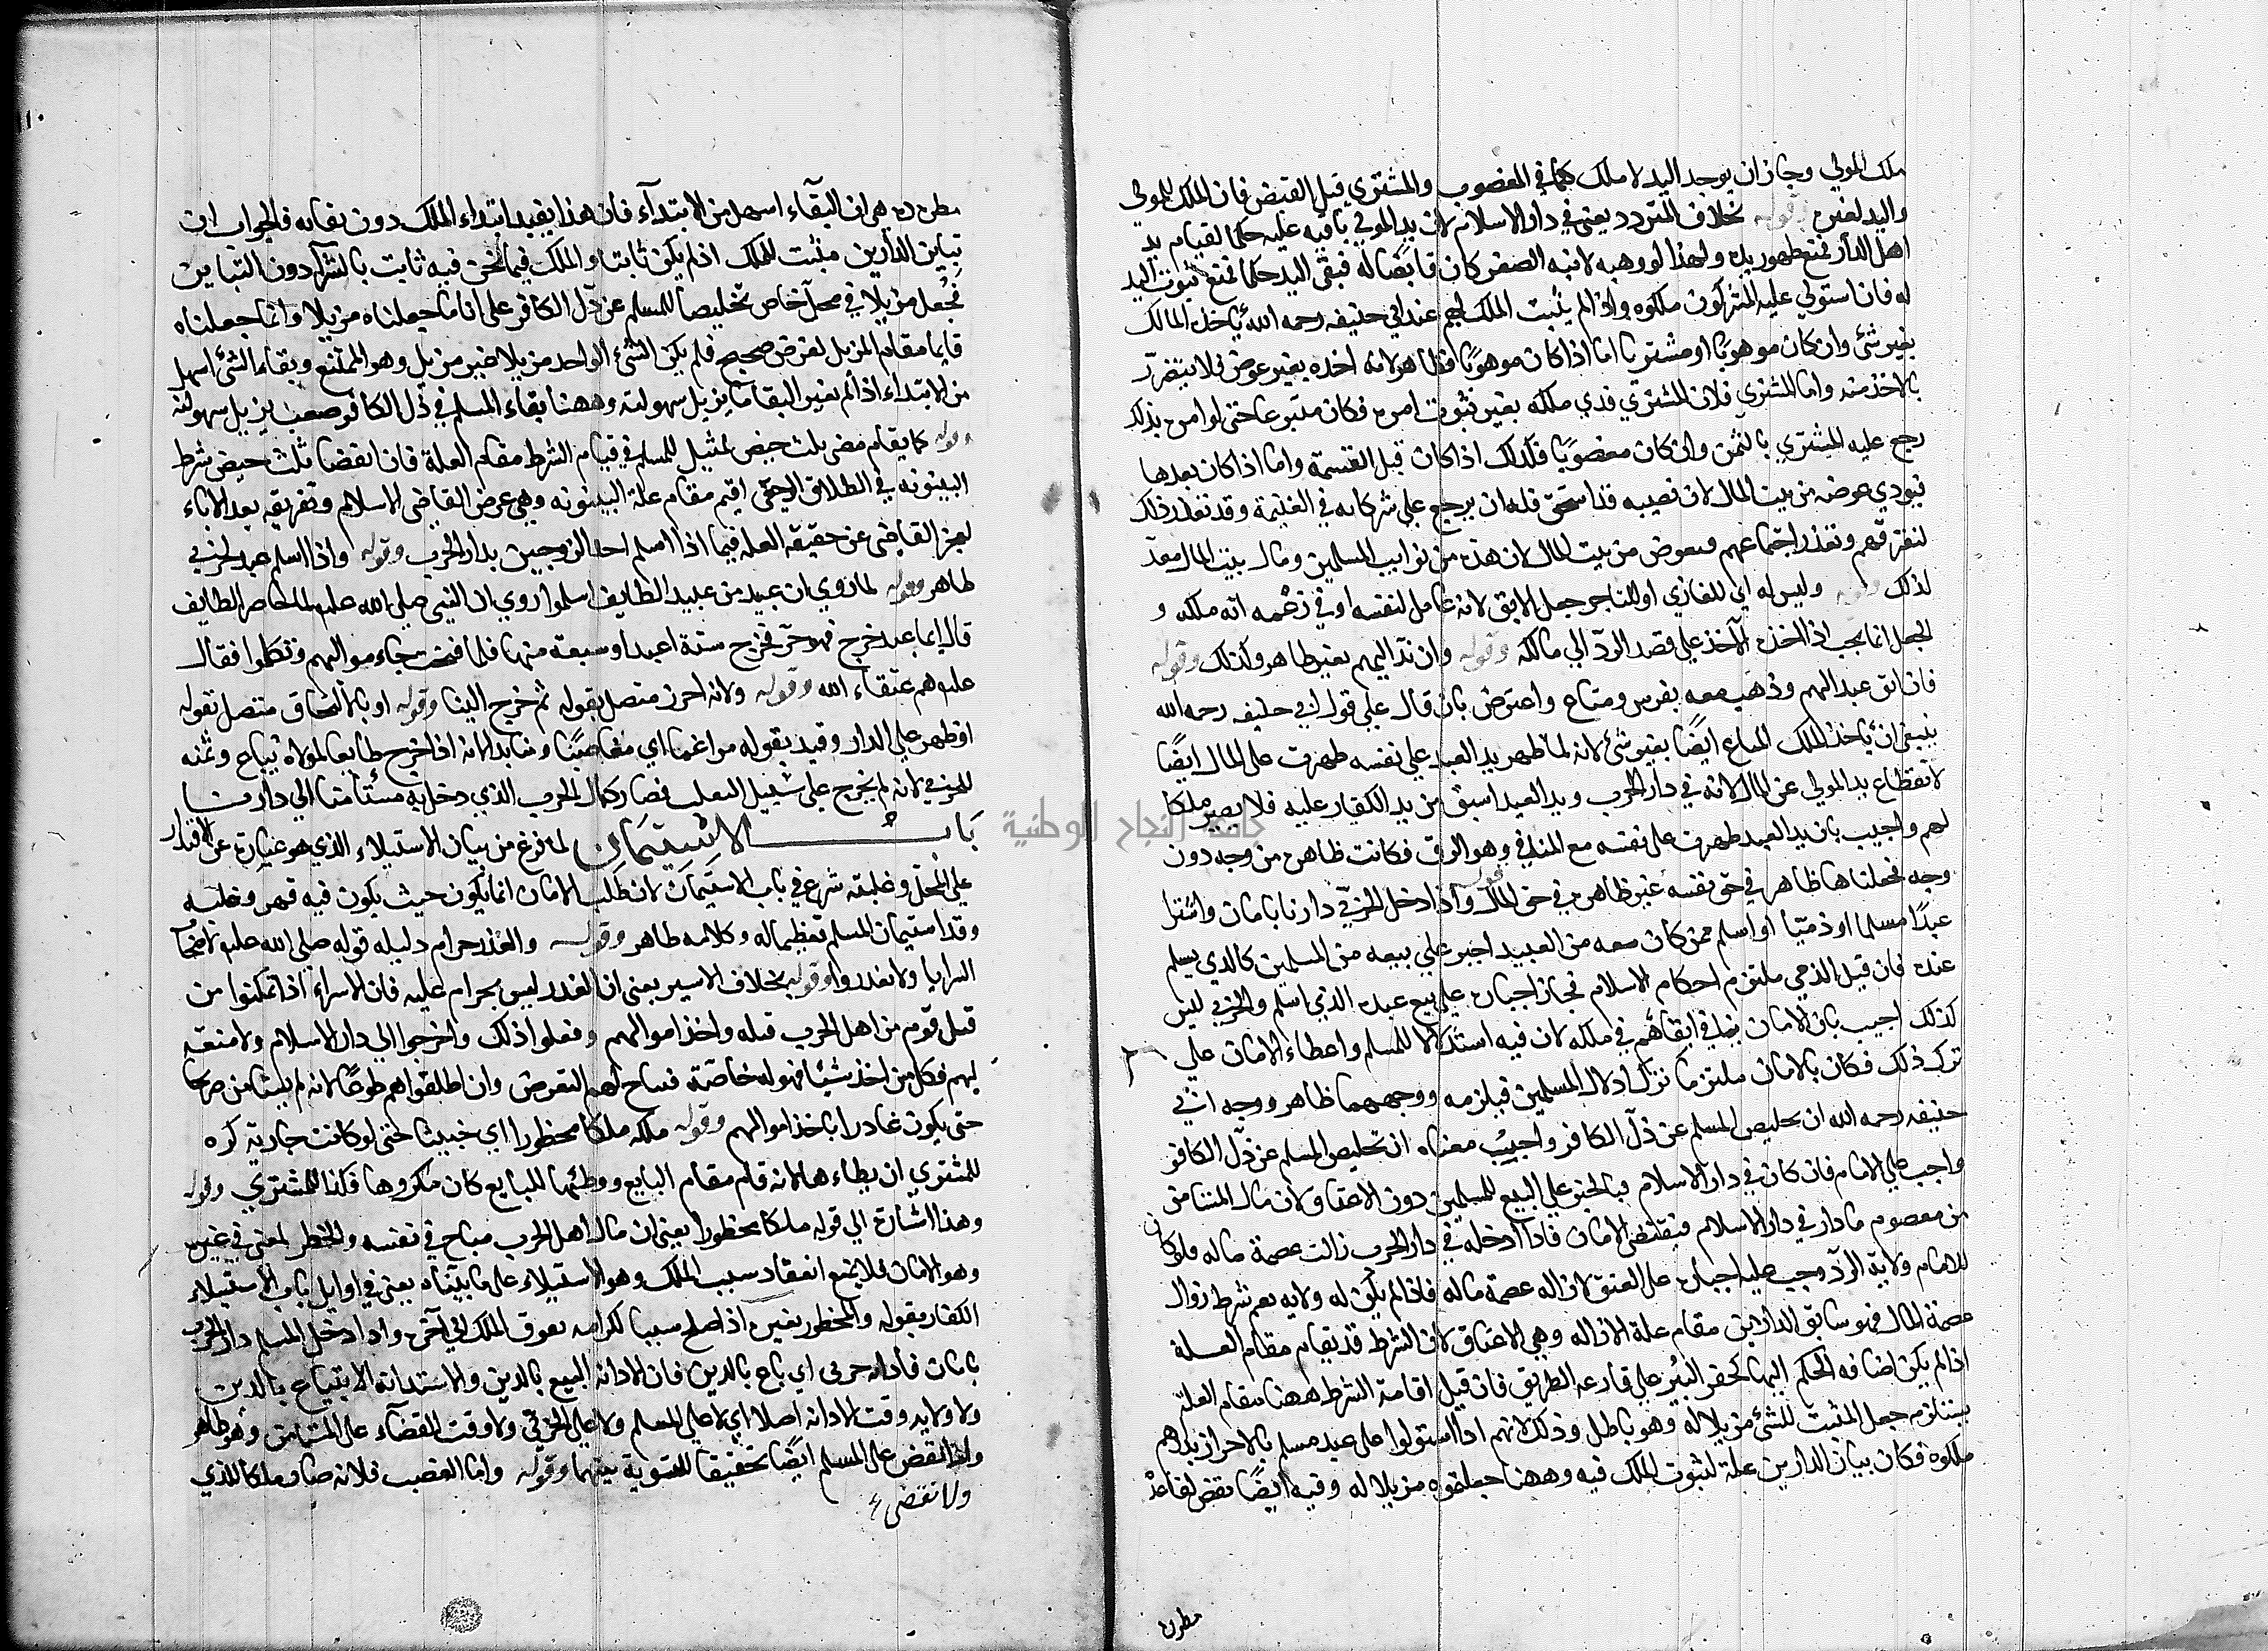 ملك المولي وجاز ان يوجد اليد لا ملك كما في المغصوب والمشتري قبل القبض فان الملك للمولي
واليد لغيره وقوله بخلاف المتردد يعني في دار الاسلام لان يد المولي باقيه عليه حكما لقيام يد
اهل الدار فمنع ظهور يده ولهذا لو وهبه لابنه الصغير كان قابضا له فبقي اليد حكما فمنع ثبوت اليد
له فان استولي عليه المشركون ملكوه واذا لم يثبت الملك لهم عند ابي حنيفه رحمه الله ياخذه المالك
بغير شئ وان كان موهوبا او مشتريا اما اذا كان موهوبا فظاهر لانه اخذه بغير عوض فلا يتضرر
بالاخذ منه واما المشتري فلان المشتري فدي ملكه بغير ثبوت امره فكان متبرعا حتي لو امره بذلك
رجع عليه المشتري بالثمن وان كان مغصوبا فكذلك اذا كان قبل القسمة واما اذا كان بعدها
فيودي عوضه من بيت المال لان نصيبه قد استحق فله ان يرجع علي شركائه في الغنيمة وقد تعذر ذلك
لتفرقهم وتعذر اجتماعهم فيعوض من بيت المال لان هذه من نوايب المسلمين ومال بيت المال معد
لذلك وقوله وليس له اي للغازي او للتاجر جعل الابق لانه عامل لنفسه او في زعمه انه ملكه و
الجعل انما يجب اذا اخذه الاخذ علي قصد الرد الي مالكه وقوله وان ند اليهم بعير ظاهر وكذلك وقوله
فان ابق عبد اليهم وذهب معه بفرس ومتاع واعترض بان قال علي قول ابي حنيفه رحمه الله
ينبغي ان ياخذ المالك المتاع ايضا بغير شئ لانه لما ظهر يد العبد علي نفسه ظهرت علي المال ايضا
لانقطاع يد المولي عن المال لانه في دار الحرب ويد العبد اسبق من يد الكفار عليه فلا يصير ملكا
لهم واجيب بان يد العبد ظهرت علي نفسه مع المنافي وهو الرق فكانت ظاهرة من وجه دون
وجه فجعلناها ظاهرة في حق نفسه غير ظاهرة في حق المال قوله واذا دخل الحربي دارنا بامان واشترا
عبدا مسلما او ذميا او اسلم ممن كان معه من العبيد اجبر علي بيعه من المسلمين كالذي يسلم
عنده فان قيل الذمي ملتزم احكام الاسلام فجاز اجباره علي بيع عبده الذي اسلم والحربي ليس
كذلك اجيب بان الامان ينافي ابقاهم في ملكه لان فيه استذلالا للمسلم واعطاء الامان علي
ترك ذلك فكان بالامان ملتزما ترك اذلال المسلمين فيلزمه ووجههما ظاهر ووجه ابي
حنيفه رحمه الله ان تخليص المسلم عن ذل الكافر واجب معناه ان تخليص المسلم عن ذل الكافر
واجب علي الامام فان كان في دار الاسلام فبالجبر علي البيع للمسلمين دون الاعتاق لان مال المستامن
من معصوم مادار في دار الاسلام فيقتضي الامان فاذا ادخله في دار الحرب زالت عصمة ماله فلو كان
للامام ولاية الرد وجب عليه اجباره علي العتق لازاله عصمة ماله فاذا لم يكن له ولايه نعم شرط زوال
عصمة المال فهو سابق الدارين مقام علة الازاله وهي الاعتاق لان الشرط قد يقام مقام العلة
اذا لم يكن اضافه الحكم اليها كحفر البئر علي قارعه الطريق فان قيل اقامة الشرط ههنا مقام العلة
يستلزم جعل المثبت للشئ مزيلا له وهو باطل وذلك لانهم اذا استولوا علي عبد مسلم بالاحراز بدارهم
ملكوه فكان تباين الدارين علة لثبوت الملك فيه وههنا جعلتموه مزيلا له وفيه ايضا نقض لقاعدة
مطرده
مطرده هي ان البقاء اسهل من الابتدآء فان هذا يفيد ابتداء الملك دون بقائه فالجواب ان
تباين الدارين مثبت للملك اذا لم يكن ثابتا والملك فيما نحن فيه ثابت بالشرآء دون التباين
فجعل مزيلا في محل خاص تخليصا للمسلم عن ذل الكافر علي انا ما جعلناه مزيلا وانما جعلناه
قايما مقام المزيل لغرض صحيح فلم يكن الشئ الواحد مزيلا غير مزيل وهو الممتنع وبقاء الشئ اسهل
من الابتداء اذا لم يعين البقا ما يزيل سهولته وههنا بقاء المسلم في ذل الكافر صعب يزيل سهولته
وقوله كما يقام مضي ثلث حيض تمثيل للمسلم في قيام الشرط مقام العلة فان انقضا ثلث حيض شرط
البينونه في الطلاق الرجعي اقيم مقام علة البينونه وهي عرض القاضي الاسلام وتفريقه بعد الاباء
لعجز القاضي عن حقيقة العله فيما اذا اسلم احد الزوجين بدار الحرب وقوله واذا اسلم عبد لحربي
ظاهر وقوله لما روي ان عبيد من عبيد الطايف اسلموا روي ان النبي صلي الله عليه لما حاصر الطايف
قال ايما عبد خرج فهو حر فخرج ستة اعبد او سبعة منها فلما فتحت جاء مواليهم وتكلموا فقال
عليه هم عتقاء الله وقوله ولانه احرز متصل بقوله ثم خرج الينا وقوله او بالالتحاق متصل بقوله
او ظهر علي الدار وقيد بقوله مراغما اي مغاضبا ومنابذا لانه اذا خرج طايعا لمولاه يباع وثمنه
للحربي لانه لم يخرج علي سبيل التغلب فصار كمال الحربي الذي دخل به مستأمنا الي دارنا
باب الاستيمان لما فرغ من بيان الاستيلاء الذي هو عبارة عن الاقتدار
علي المحل وغلبته شرع في باب الاستيمان لان طلب الامان انما يكون حيث يكون فيه قهر وغلبه
وقدم استيمان المسلم تعظيما له وكلامه ظاهر وقوله والغدر حرام دليله قوله صلي الله عليه لاصحاب
السرايا ولا تغدروا وقوله بخلاف الاسير يعني ان الغدر ليس بحرام عليه فان الاسراء اذا تمكنوا من
قتل قوم من اهل الحرب قتله واخذ اموالهم وفعلوا ذلك واخرجوا الي دار الاسلام ولا منعة
لهم فكل من اخذ شيئا فهو له خاصة فيباح لهم التعرض وان اطلقواهم طوعا لانه لم يستامن صريحا
حتي يكون غادرا باخذ اموالهم وقوله ملكه ملكا محظورا اي خبيثا حتي لو كانت جارية كره
للمشتري ان يطاءها لانه قام مقام البايع ووطئها للبايع كان مكروها فكذا للمشتري وقوله
وهذا اشارة الي قوله ملكا محظورا يعني ان مال اهل الحرب مباح في نفسه والحظر لمعني في غيره
وهو الامان فلا يمنع انعقاد سبب الملك وهو الاستيلاء علي ما بيناه يعني في اوايل باب الاستيلاء
الكفار بقوله والمحظور لغيره اذا صلح سببا لكرامه تفوق الملك الي اخره واذا دخل المسلم دار الحرب
بامان فادانه حربي اي باع بالدين فان الادانه البيع بالدين والاستدانه الابتياع بالدين
ولا ولايه وقت الادانه اصلا اي لا علي المسلم ولا علي الحربي ولا وقت القضآء علي المستامن وهو ظاهر
ولا تقض علي المسلم ايضا تحقيقا للتسوية بينهما وقوله واما الغصب فلانه صار ملكا للذي
ولا تقضي
جامعة النجاح الوطنية